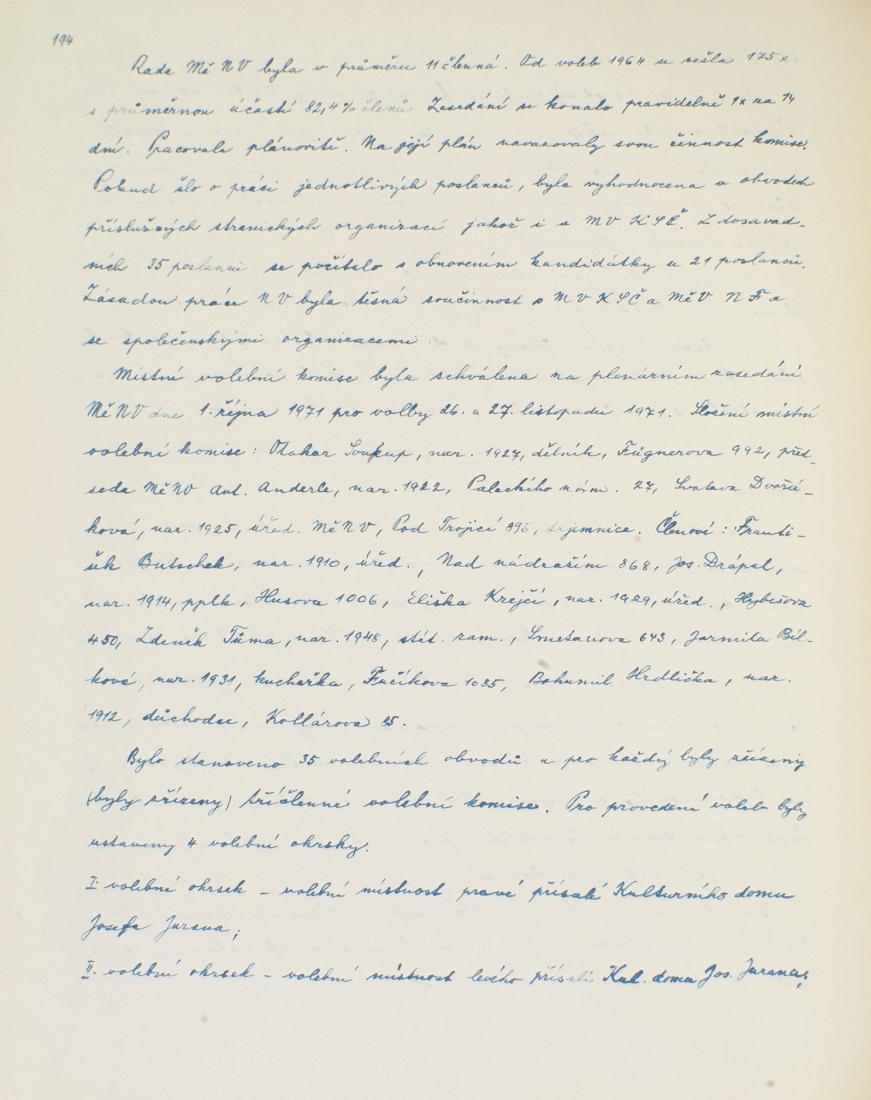 194
Rada Mě NV byla v průměru 11 členná. Od voleb 1964 se sešla 175 x
s průměrnou účastí 82,4 % členů. Zasedání se konalo pravidelně 1x za 14
dní. Pracovala plánovitě. Na její plán navazovaly svou činnost komise.
Pokud šlo o práci jednotlivých poslanců, byla vyhodnocena v obvodech
příslušných stranických organizací jakož i v MV KSČ. Z dosavad-
ních 35 poslanců se počítalo s obnovením kandidátky u 21 poslanců.
Zásadou práce NV byla těsná součinnost s MV KSČ a MěV NF a
se společenskými organizacemi.
Místní volební komise byla schválena na plenárním zasedání
Mě NV dne 1. října 1971 pro volby 26. a 27. listopadu 1971. Složení místní
volební komise: Otakar Soukup, nar. 1927, dělník, Fügnerova 992, před-
seda Mě NV Ant. Anderle, nar. 1922, Palackého nám. 27, Svatava Dvořá-
ková, nar. 1925, úřed. Mě NV, Pod Trojicí 895, tajemnice. Členové: Franti-
šek Butschek, nar. 1910, úřed., Nad nádražím 868, Jos. Drápal,
nar. 1914, pplk, Husova 1006, Eliška Krejčí, nar. 1929, úřed., Hybešova
450, Zdeněk Tůma, nar. 1948, stát. zam., Smetanova 643, Jarmila Bíl-
ková, nar. 1931, kuchařka, Fučíkova 1035, Bohumil Hrdlička, nar.
1912, důchodce, Kollárova 35.
Bylo stanoveno 35 volebních obvodů a pro každý byly zřízeny
(byly zřízeny) tříčlenné volební komise. Pro provedení voleb byly
ustaveny 4 volební okrsky.
I. volební okrsek – volební místnost pravé přísálí Kulturního domu
Josefa Jurana;
II. volební okrsek – volební místnost levého přísálí Kul. domu Jos. Jurana;